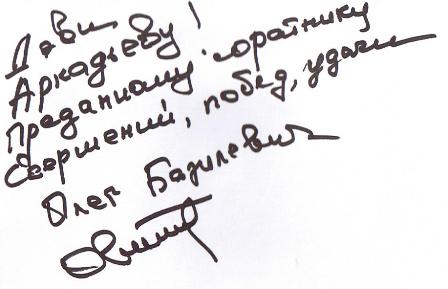 Деви
Аркадьеву!
Преданному соратнику
Свершений, побед, удачи
Олег Базилевич